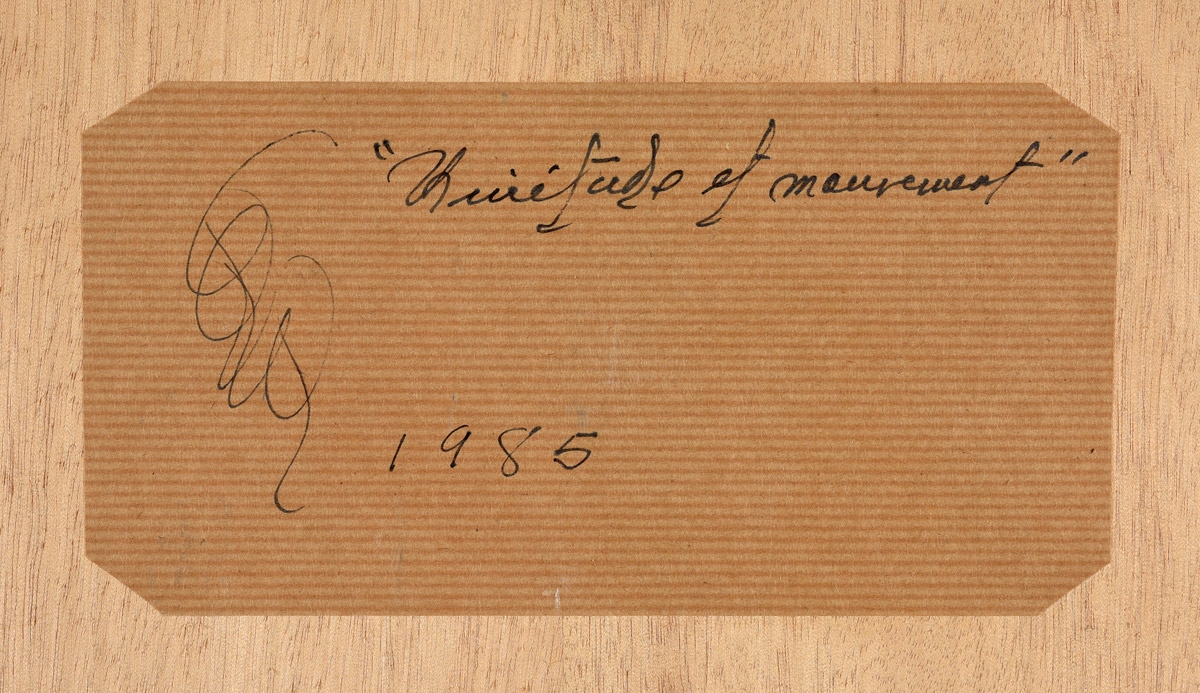 "Quiétude et mouvement"
1985